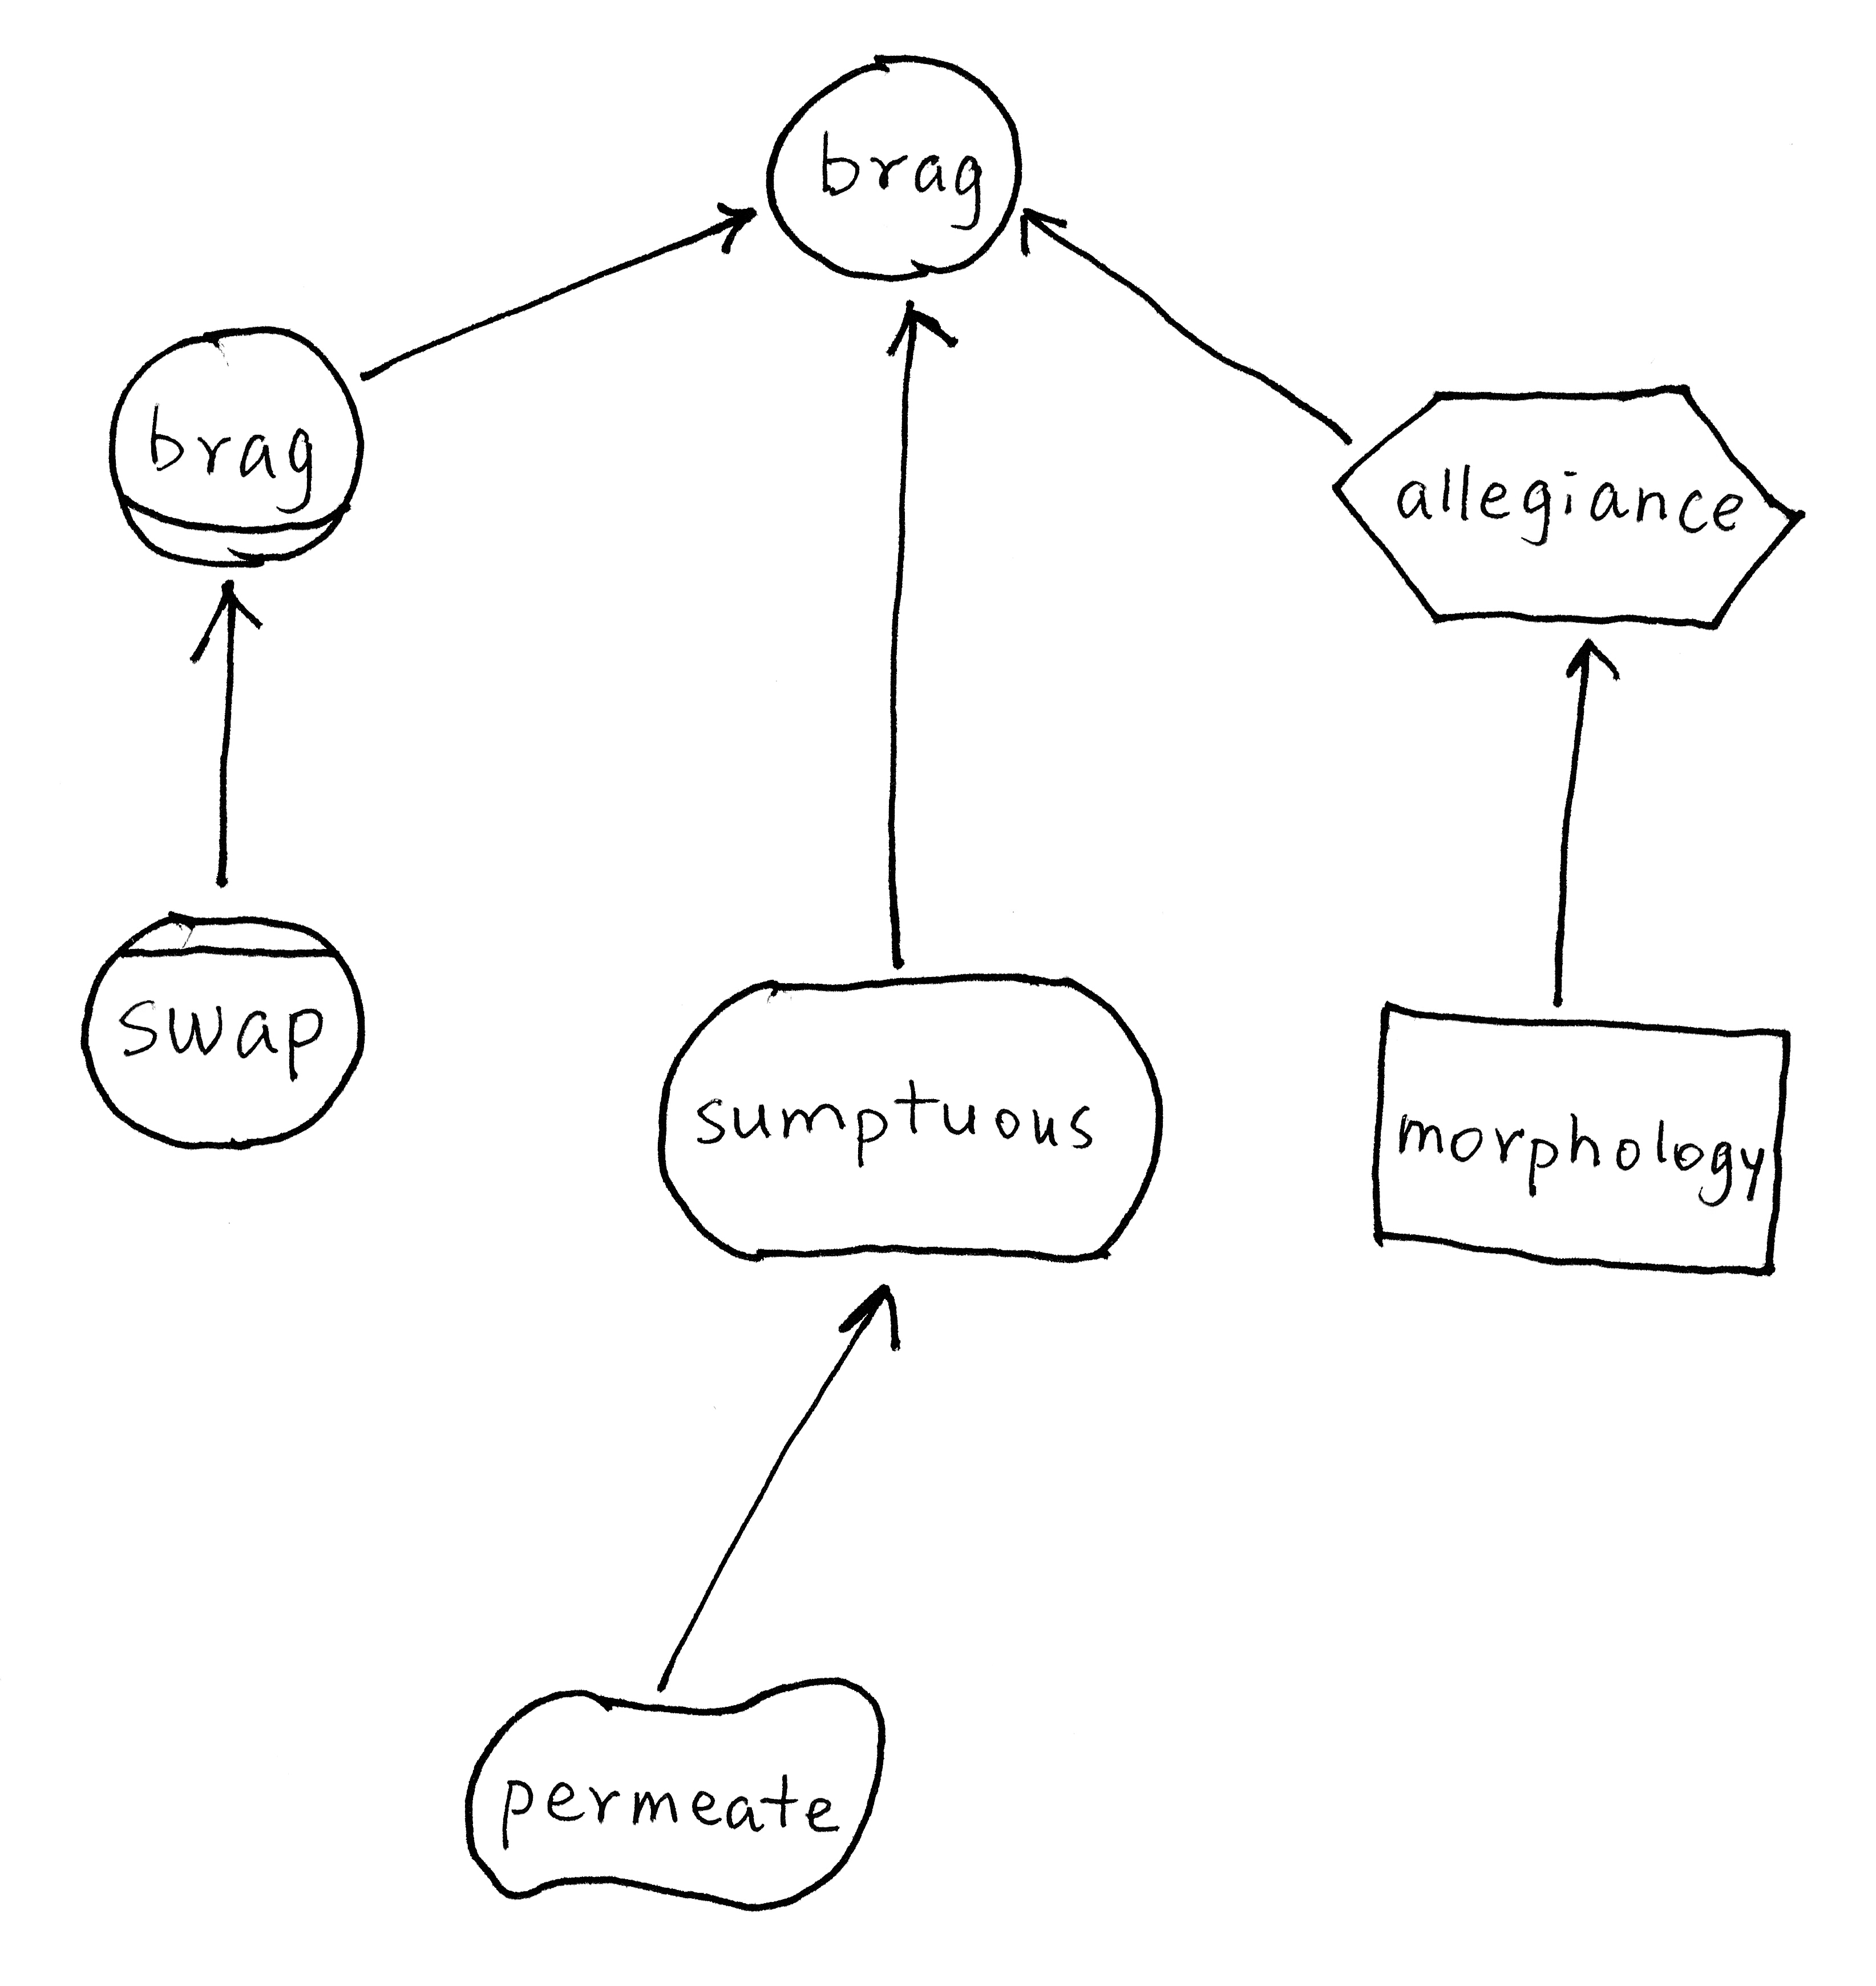 brag
brag
allegiance
swap
sumptuous
morphology
permeate